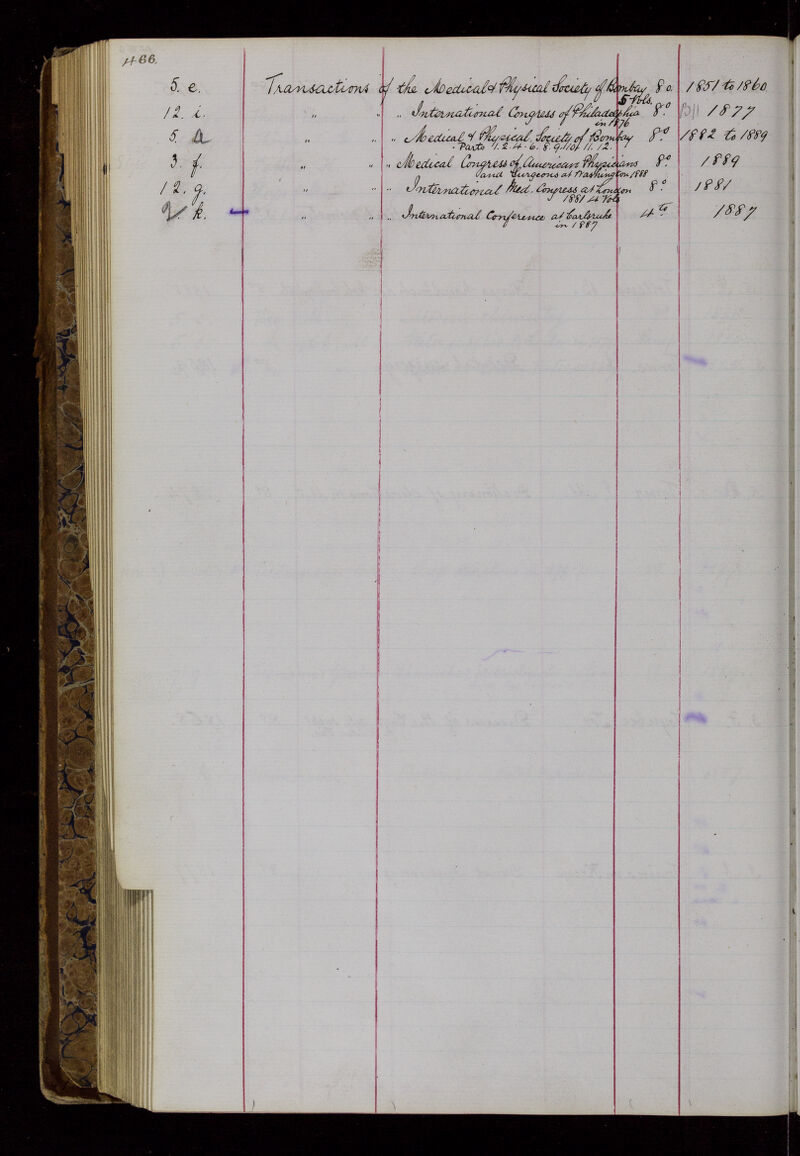 466.
5. e. Transactions of the Medical & Physical Society of Bombay 8o 1851 to 1860
5 Vols.
12. i. " " " International Congress of Philadelphia 8o 1877
in 1876
5. a " " " Medical & Physical Society of Bombay 8o 1882 to 1889
Parts 1. 2. 4. 6. 8. 9. 10. 11. 12.
3. f. " " " Medical Congress of American Physicians 8o 1889
and Surgeons at Washington 1888
12. g. " " " International Med. Congress at London 8o 1881
1881 4 Vols
k. " " " International Conference at Carlsruhe 4to 1887
in 1887